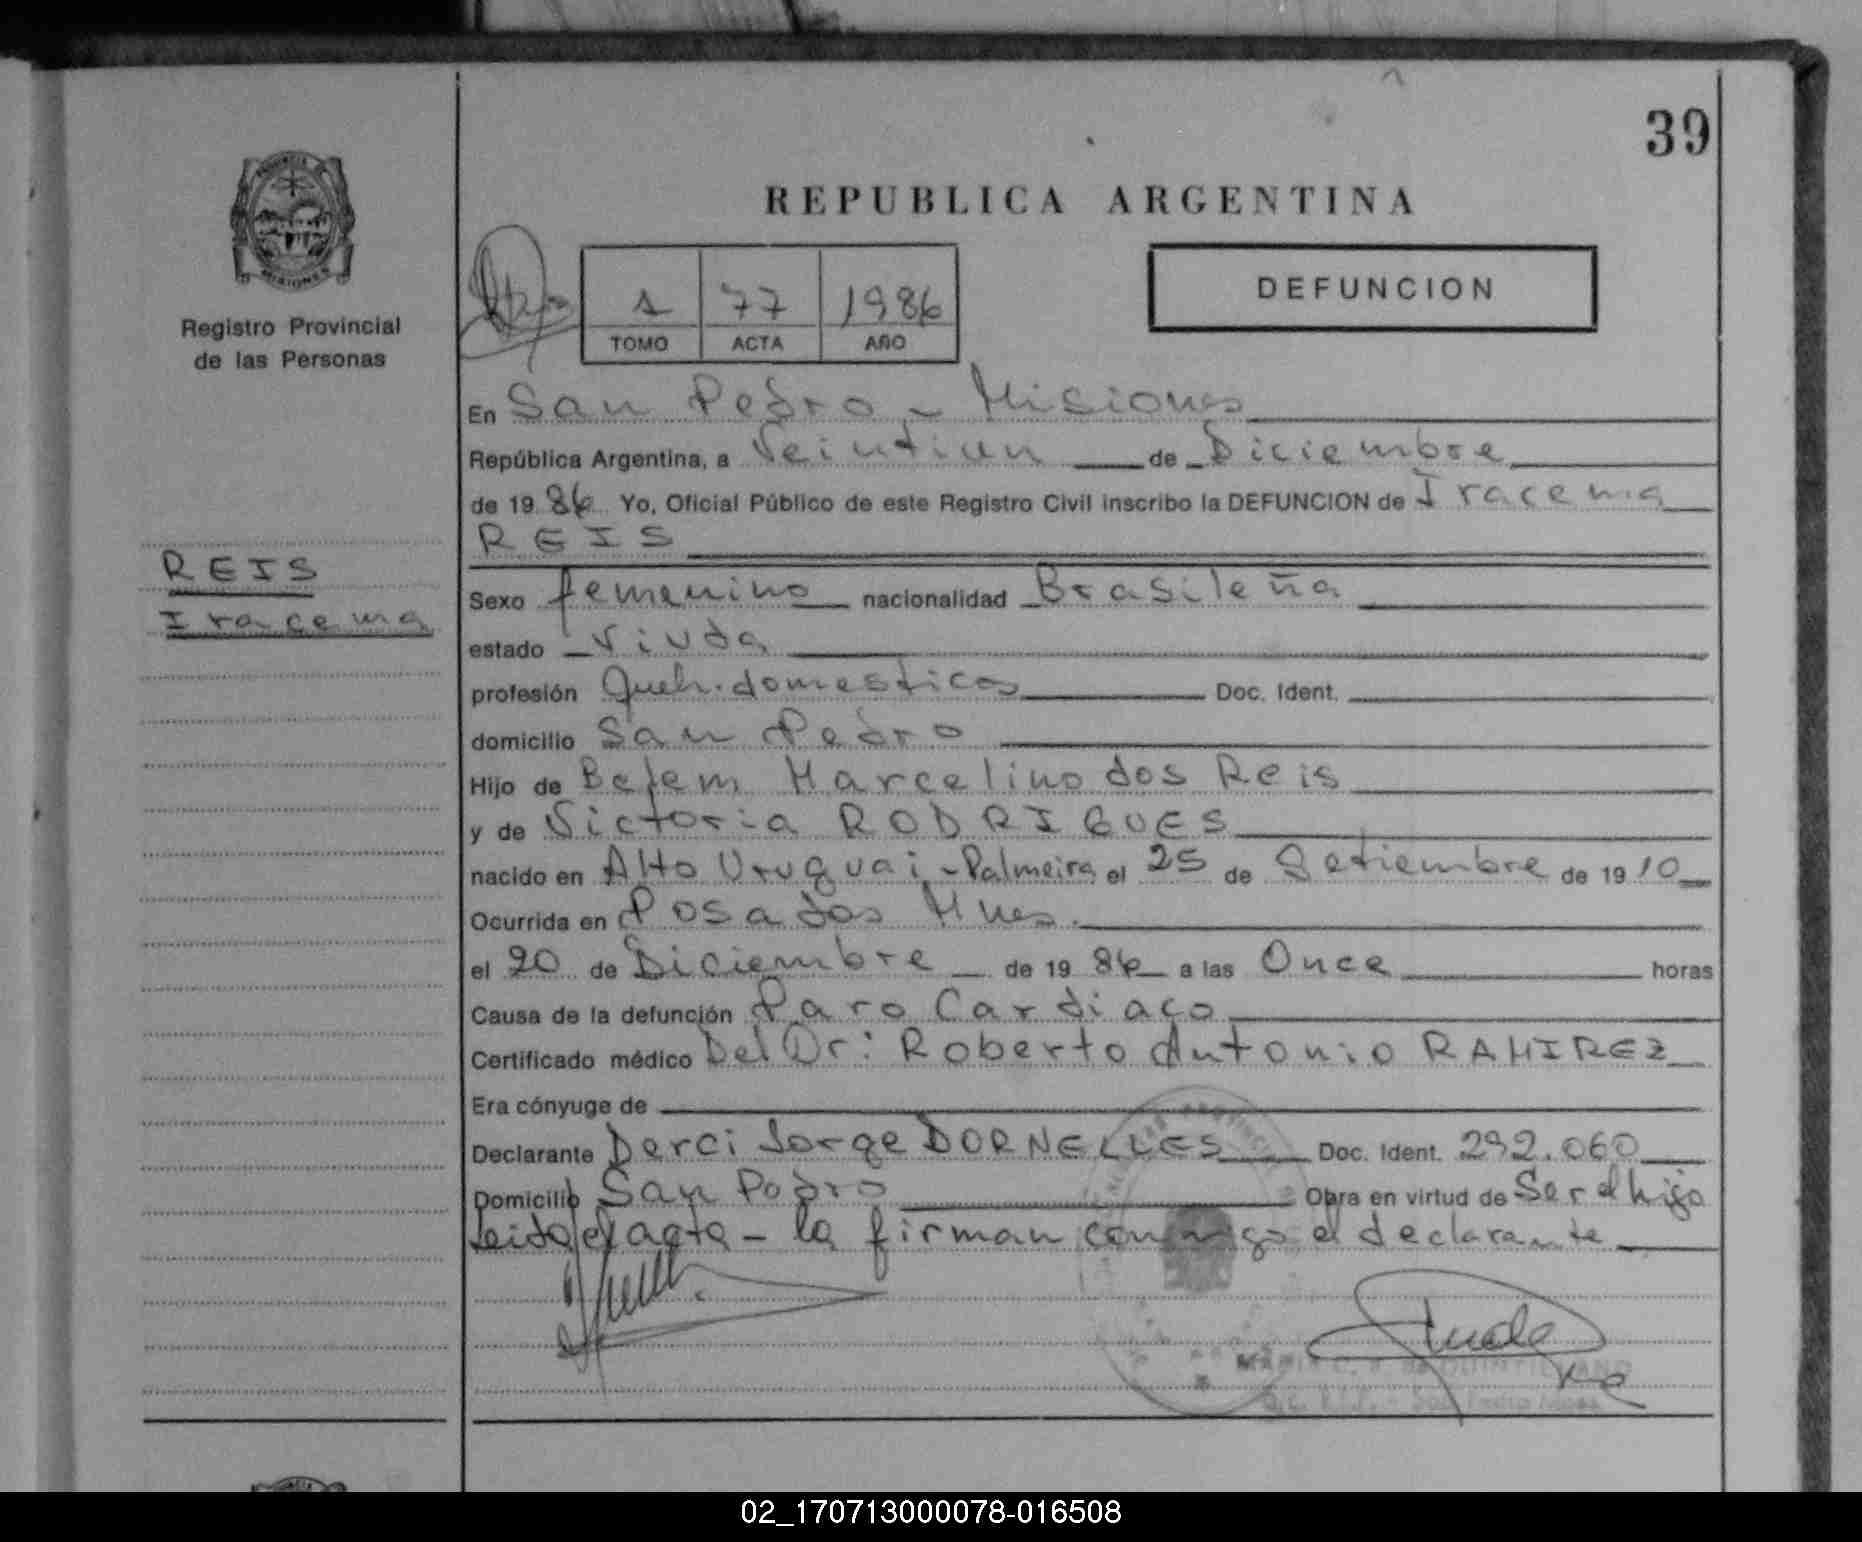 39
REPUBLICA ARGENTINA
PROVINCIA DE
MISIONES
Registro Provincial
de las Personas
1 77 1986
TOMO ACTA AÑO
DEFUNCION
REIS
Iracema
En San Pedro - Misiones
República Argentina, a Veintiun de Diciembre
de 19 86 Yo, Oficial Público de este Registro Civil inscribo la DEFUNCION de Iracema
REIS
Sexo femenino nacionalidad Brasileña
estado Viuda
profesión Queh. domesticos Doc. Ident.
domicilio San Pedro
Hijo de Belem Marcelino dos Reis
y de Victoria RODRIGUES
nacido en Alto Uruguai - Palmeira el 25 de Setiembre de 19 10
Ocurrida en Posadas Mnes.
el 20 de Diciembre de 19 86 a las Once horas
Causa de la defunción Paro Cardiaco
Certificado médico Del Dr: Roberto Antonio RAMIREZ
Era cónyuge de
Declarante Derci Jorge DORNELLES Doc. Ident. 292.060
Domicilio San Pedro Obra en virtud de Ser el hijo
Leida el acta - la firman conmigo el declarante
MARIA C. de QUINTILIANO
02_170713000078-016508